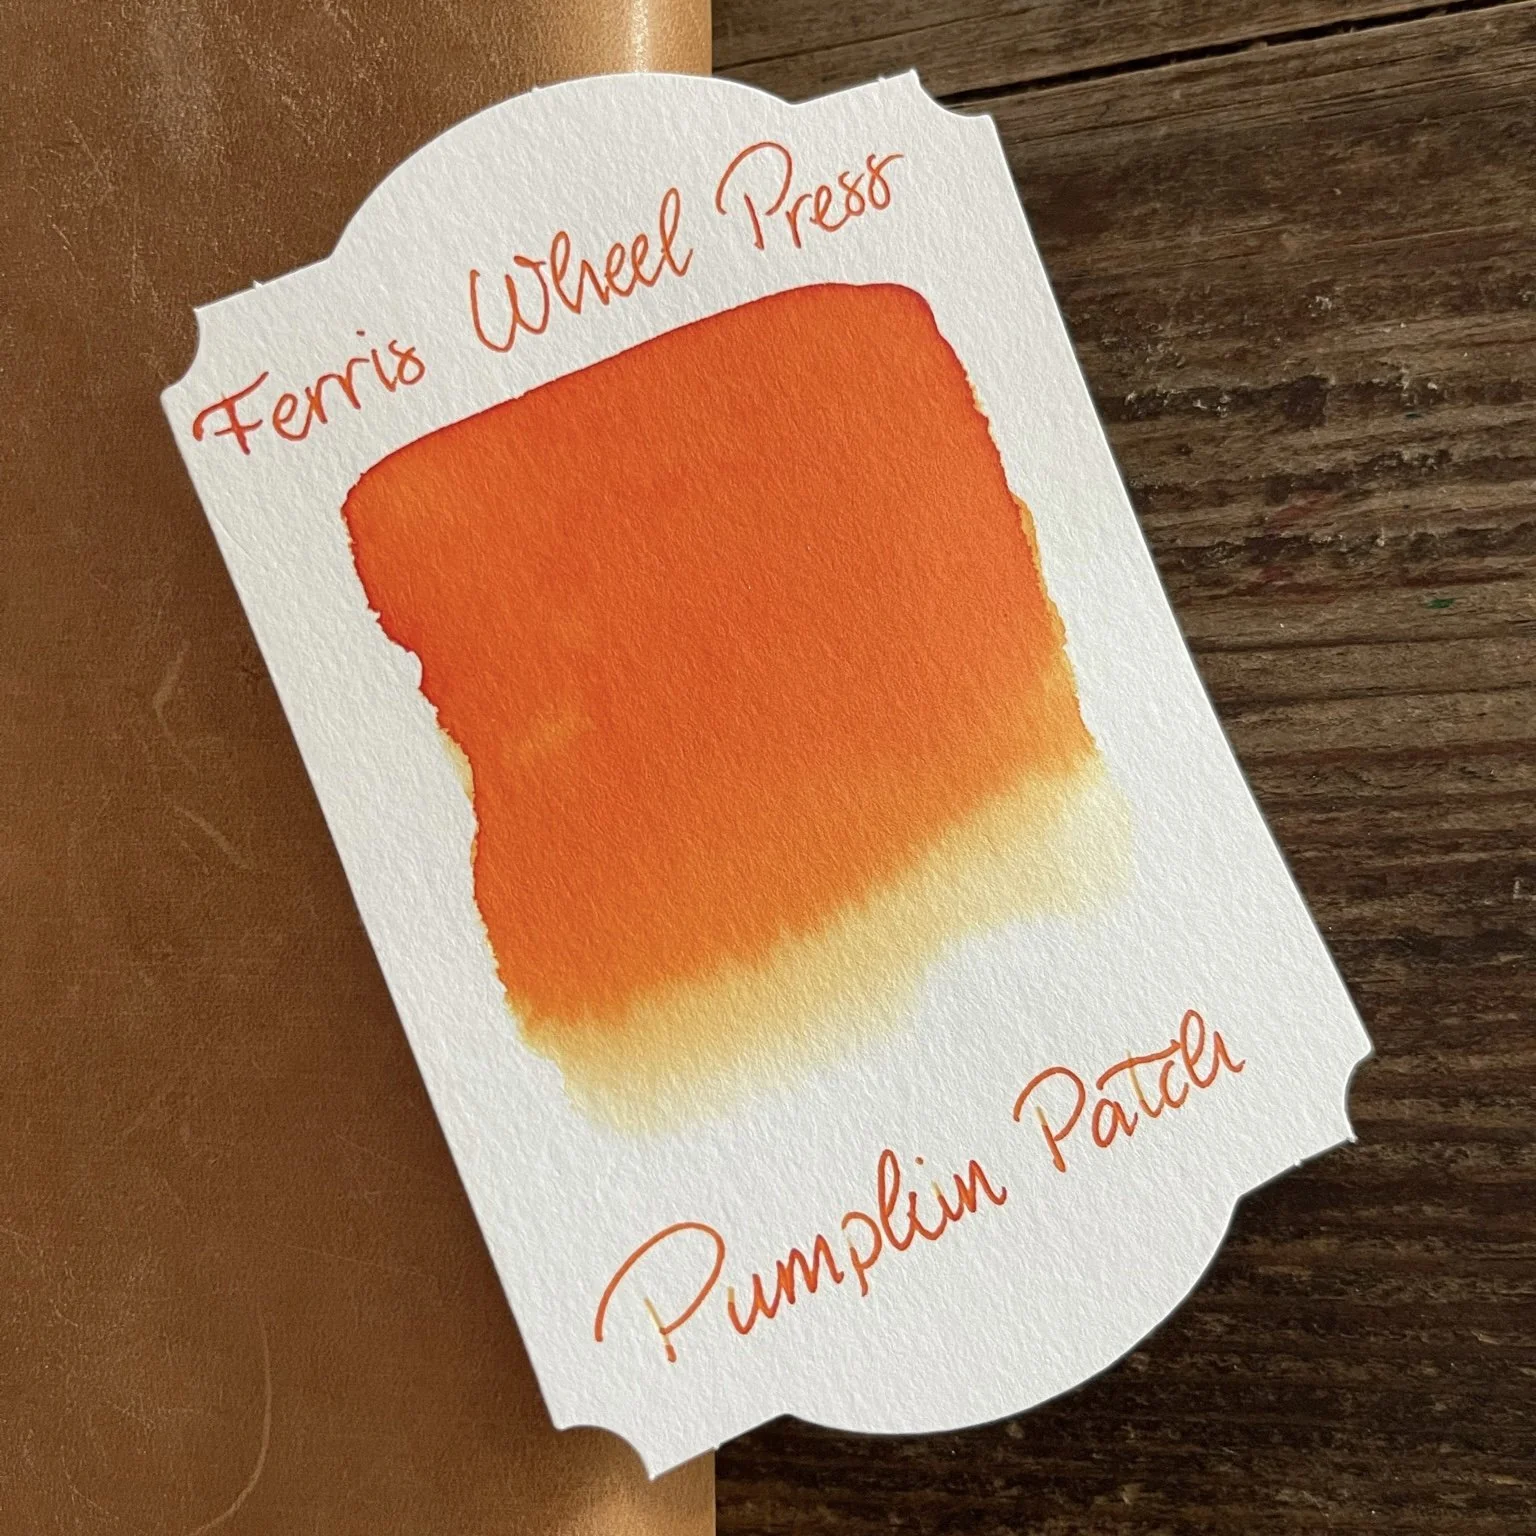 Ferris Wheel Press
Pumpkin Patch